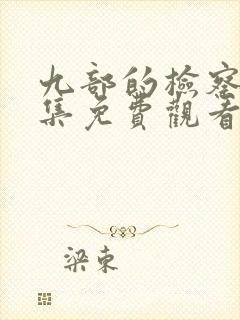 九部的檢察
集免費觀看
梁東